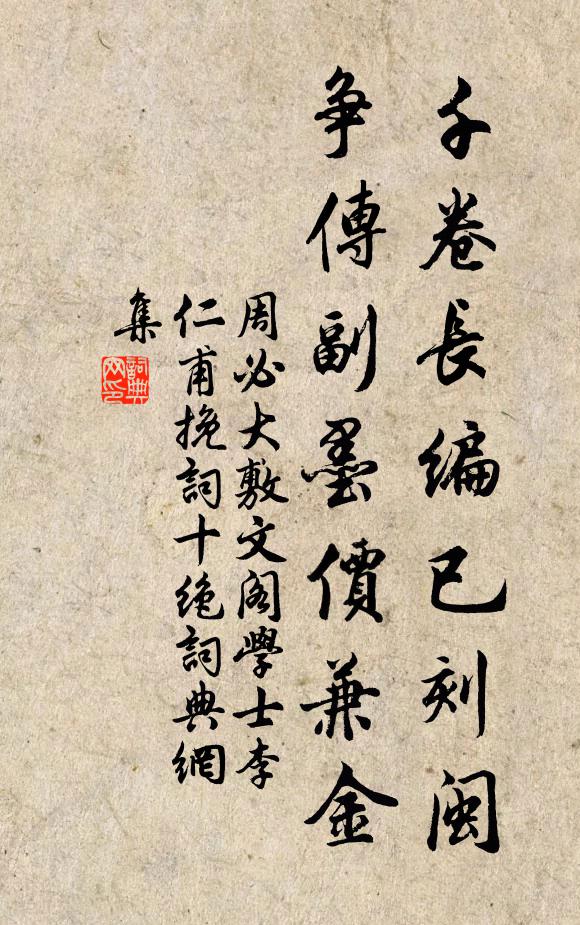 千卷長編已刻閩
争傳副墨價兼金
周必大敷文阁學士李
仁甫挽詞十绝詞典網
集
詞典
网印